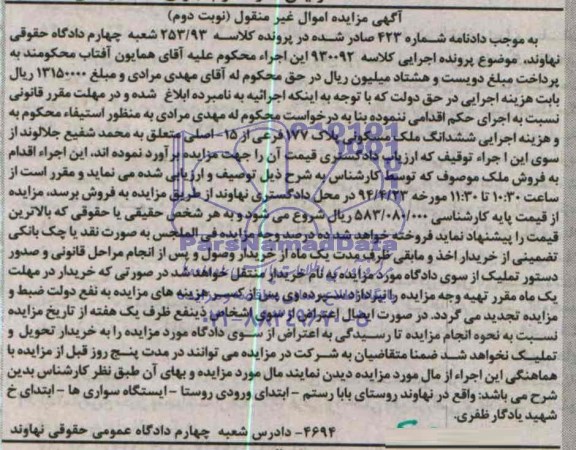 آگهی مزایده اموال غیر منقول (نوبت دوم)
به موجب دادنامه شماره ۴۲۳ صادر شده در پرونده کلاسه ۲۵۳/۹۳ شعبه چهارم دادگاه حقوقی
نهاوند، موضوع پرونده اجرایی کلاسه ۹۳۰۰۹۲ این اجراء محکوم علیه آقای همایون آفتاب محکومند به
پرداخت مبلغ دویست و هشتاد میلیون ریال در حق محکوم له آقای مهدی مرادی و مبلغ ۱۳۱۵۰۰۰۰ ریال
بابت هزینه اجرایی در حق دولت که با توجه به اینکه اجرائیه به نامبرده ابلاغ شده و در مهلت مقرر قانونی
نسبت به اجرای حکم اقدامی ننموده بنا به درخواست محکوم له مهدی مرادی به منظور استیفاء محکوم به
و هزینه اجرایی ششدانگ ملک معرفی پلاک ۱۷۷ فرعی از ۱۵- اصلی متعلق به محمد شفیع جلالوند از
سوی این اجراء توقیف که ارزیاب دادگستری قیمت آن را جهت مزایده برآورد نموده اند، این اجراء اقدام
به فروش ملک موصوف که توسط کارشناس به شرح ذیل توصیف و ارزیابی شده می نماید و مقرر است از
ساعت ۱۰:۳۰ تا ۱۱:۳۰ مورخه ۹۴/۴/۲۳ در محل دادگستری نهاوند از طریق مزایده به فروش برسد، مزایده
از قیمت پایه کارشناسی ۵۸۳/۰۸۰/۰۰۰ ریال شروع می شود و به هر شخص حقیقی یا حقوقی که بالاترین
قیمت را پیشنهاد نماید فروخته خواهد شد ده درصد وجه مزایده فی المجلس به صورت نقد یا چک بانکی
تضمینی از خریدار اخذ و مابقی ظرف مدت یک ماه از خریدار وصول و پس از انجام مراحل قانونی و صدور
دستور تملیک از سوی دادگاه مورد مزایده به نام خریدار منتقل خواهد شد در صورتی که خریدار در مهلت
یک ماه مقرر تهیه وجه مزایده را نپردازد سپرده وی پس از کسر هزینه های مزایده به نفع دولت ضبط و
مزایده تجدید می گردد. در صورت ایصال اعتراض از سوی اشخاص ذینفع ظرف یک هفته از تاریخ مزایده
نسبت به نحوه انجام مزایده تا رسیدگی به اعتراض از سوی دادگاه مورد مزایده را به خریدار تحویل و
تملیک نخواهد شد ضمنا متقاضیان به شرکت در مزایده می توانند در مدت پنج روز قبل از مزایده با
هماهنگی این اجراء از مال مورد مزایده دیدن نمایند مال مورد مزایده و بهای آن طبق نظر کارشناس بدین
شرح می باشد: واقع در نهاوند روستای بابا رستم - ابتدای ورودی روستا - ایستگاه سواری ها - ابتدای خ
شهید یادگار ظفری.
۴۶۹۴- دادرس شعبه چهارم دادگاه عمومی حقوقی نهاوند
ParsNamadData